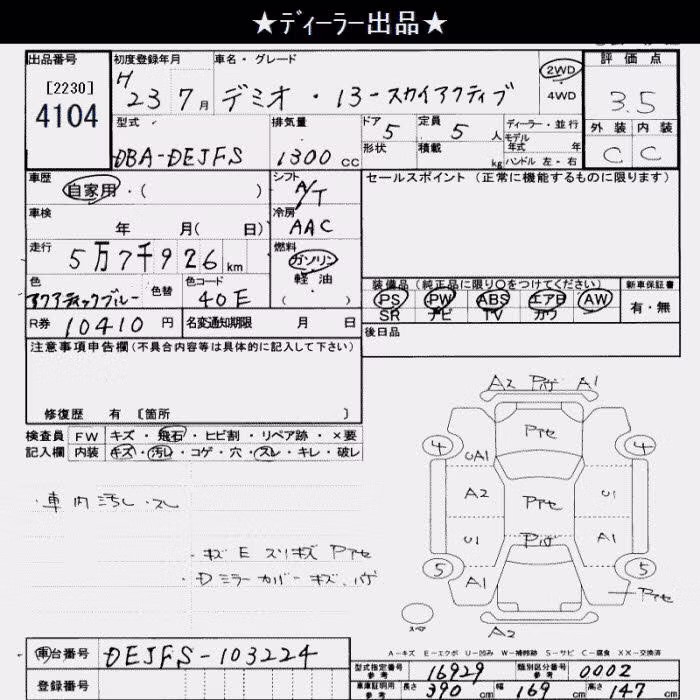 ★ディーラー出品★
出品番号 初度登録年月 車名・グレード 評価点
[2230]
4104
H 23 7月 デミオ・13-スカイアクティブ
2WD
4WD
3.5
型式 排気量 ドア 定員 ディーラー・並行 外装 内装
DBA-DEJFS 1300 CC 5 5人 モデル年式 年 C C
形状 積載 kg ハンドル 左・右
車歴 シフト セールスポイント (正常に機能するものに限ります)
自家用・( ) A/T
車検 冷房
年 月( 日) AAC
走行 燃料
5万7千926km ガソリン
軽油
( )
色 色替 色コード
アクアティックブルー 40E
装備品(純正品に限り○をつけてください) 新車保証書
PS PW ABS エアB AW 有・無
SR ナビ TV カワ
R券 10410円 名変通知期限 月 日
後日品
注意事項申告欄(不具合内容等は具体的に記入して下さい)
修復歴 有 [箇所 ]
検査員 FW キズ・飛石・ヒビ割・リペア跡・×要
記入欄 内装 キズ・汚レ・コゲ・穴・スレ・キレ・破レ
・車内汚レ・スレ
・キズ E スリキズ Pアセ
・Dミラーカバーキズ、ハゲ
A2 Pハゲ A1
4 Pアセ 4
UA1
A2 Pアセ U1
U1 Pハゲ A1
5 A1 5
Pアセ
スペア
A2
A-キズ E-エクボ U-凹み W-補修跡 S-サビ C-腐食 XX-交換済
車台番号 DEJFS-103224
登録番号
型式指定番号 参考 16929 類別区分番号 参考 0002
車庫証明用 参考 長さ 390cm 幅 169cm 高さ 147cm